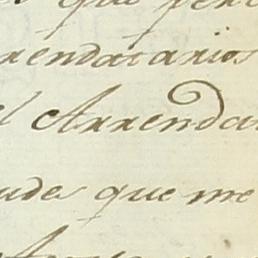 que
rrendatarios
el Arrenda
udes que me